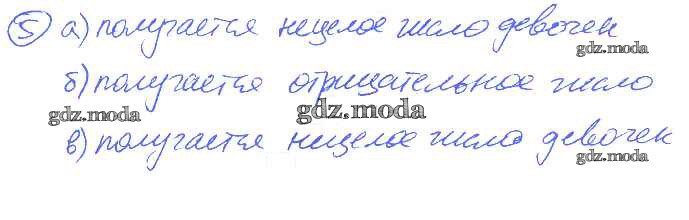 5 а) получается нецелое число девочек
gdz.moda
б) получается отрицательное число
gdz.moda gdz.moda
в) получается нецелое число девочек
gdz.moda